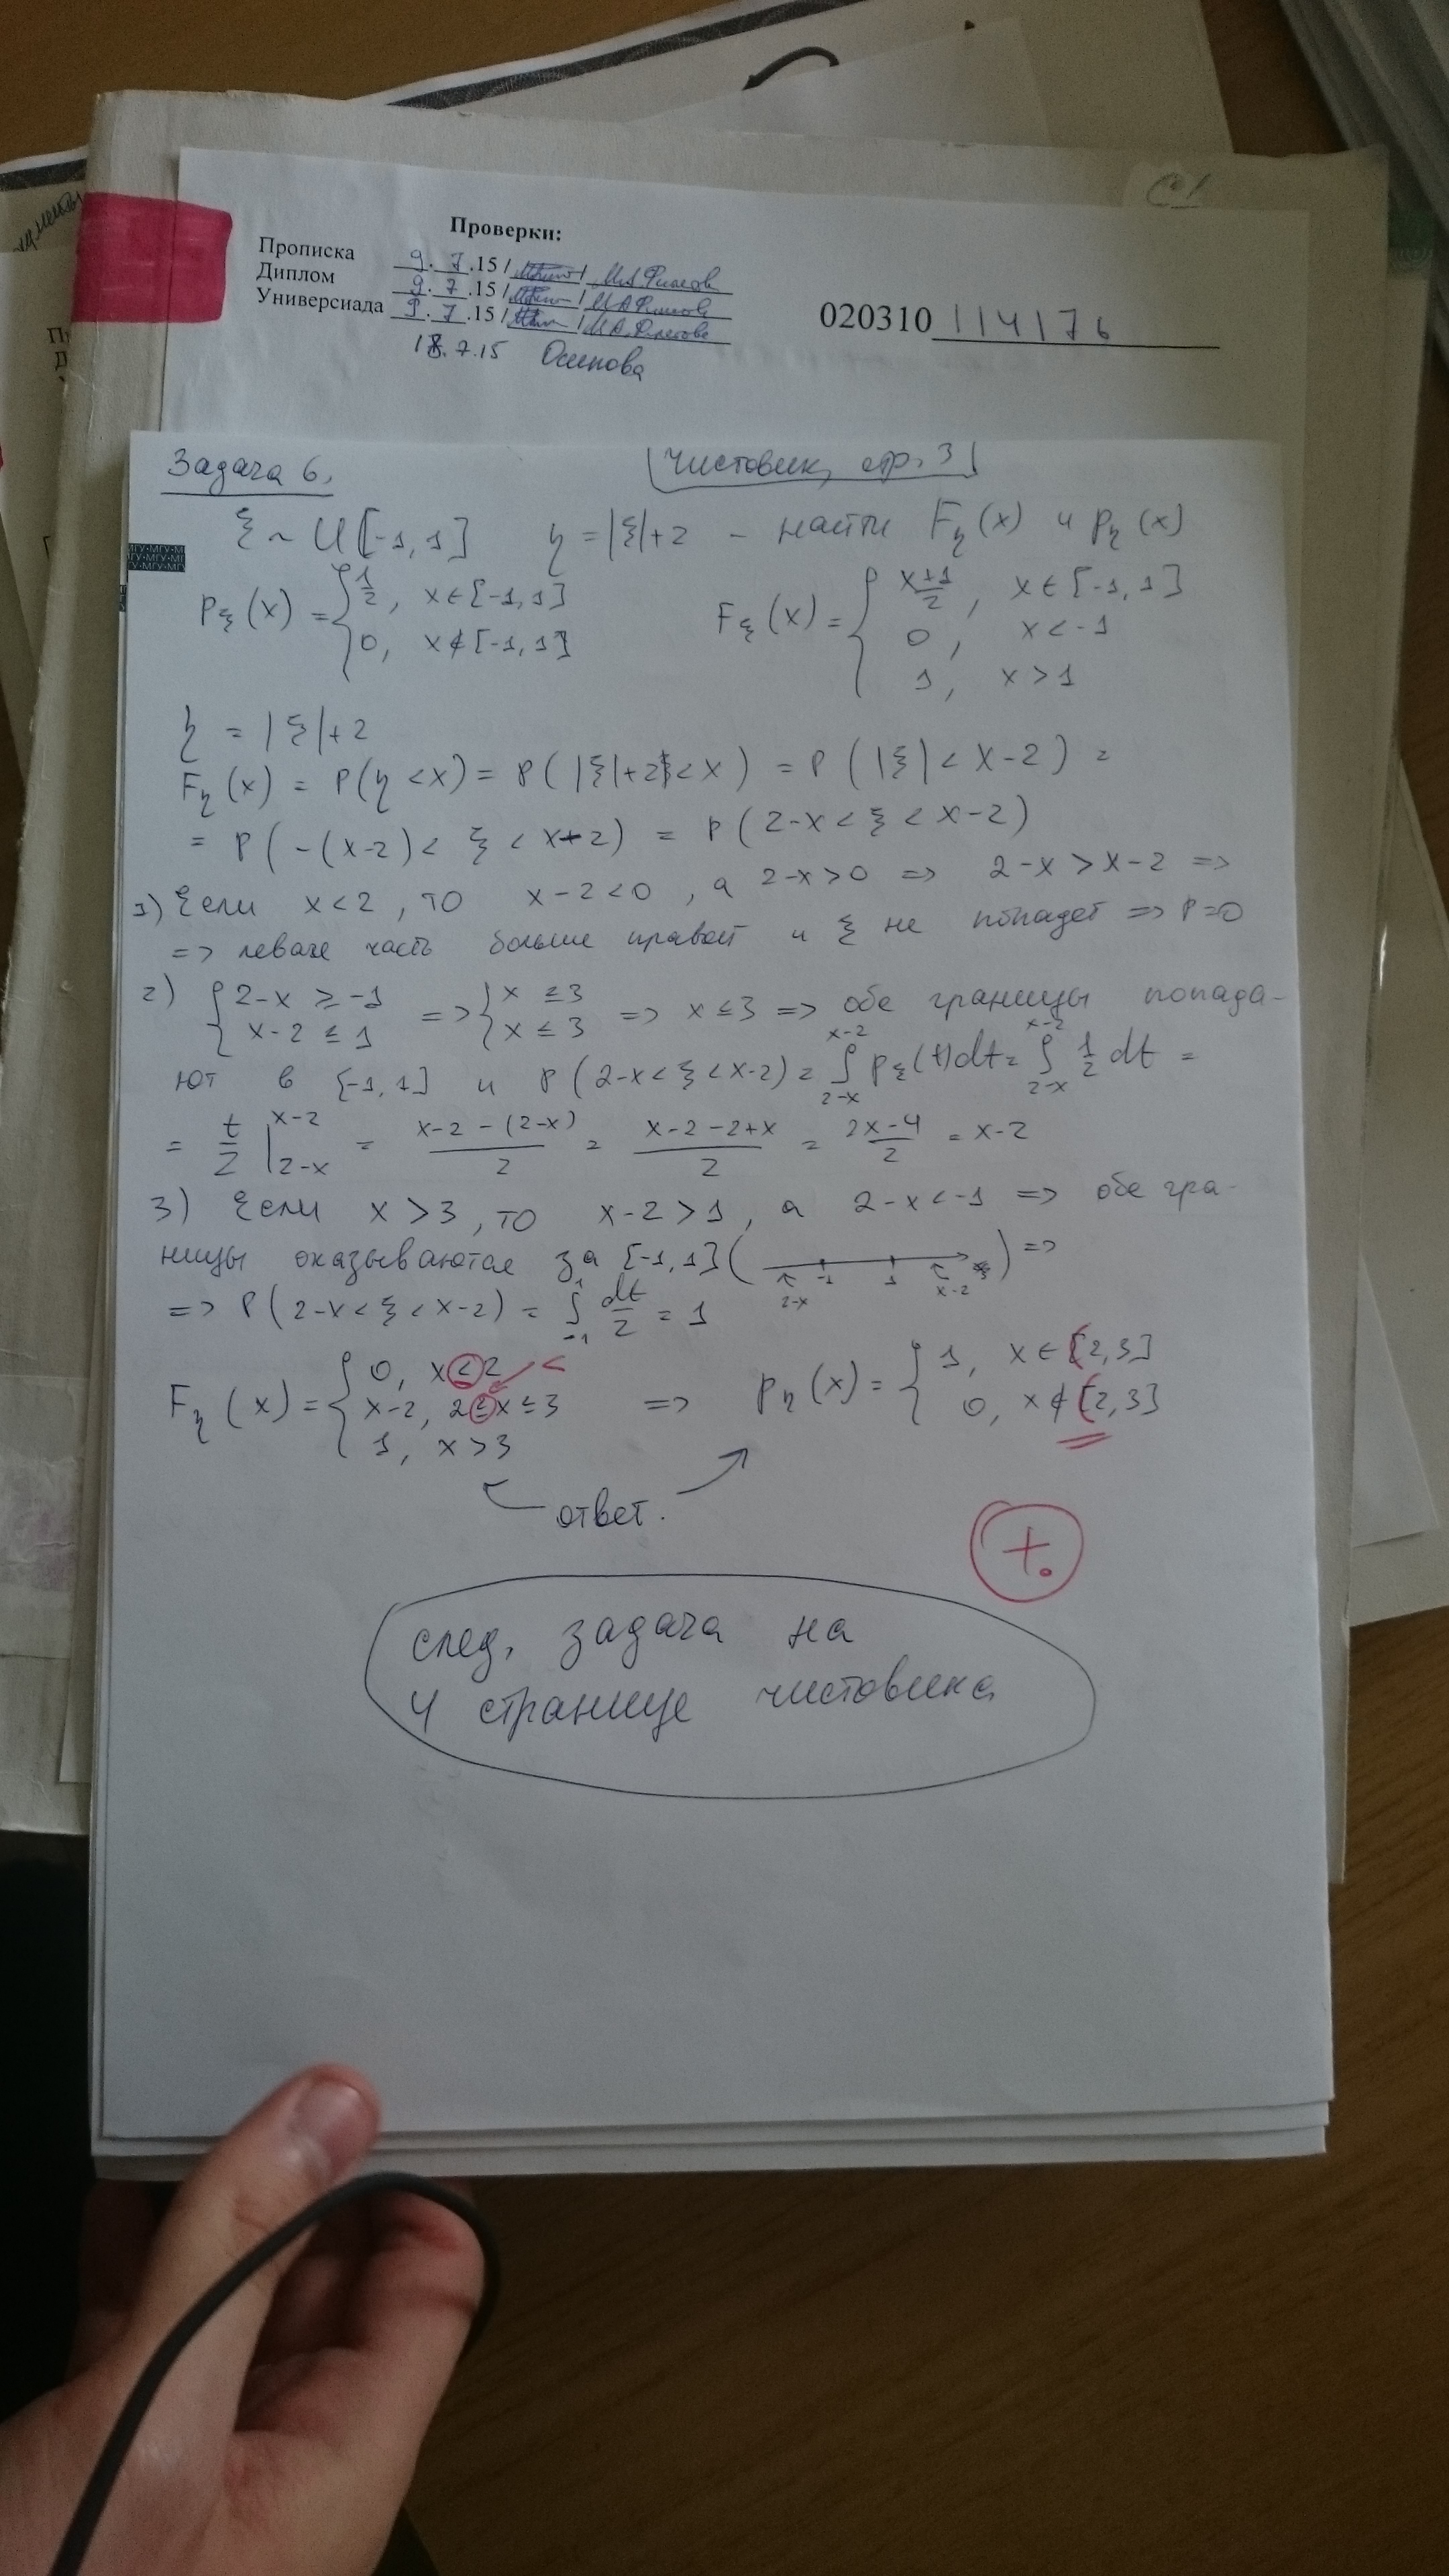 Проверки:
Прописка 9.7.15 / / М.А.Филатов
Диплом 9.7.15 / / М.А.Филатов
Универсиада 9.7.15 / / М.А.Филатов
18.7.15 Осипова
020310 114176
Задача 6.
Чистовик, стр. 3
ξ ~ U[-1,1] η = |ξ|+2 – найти Fη(x) и pη(x)
МГУ•МГУ•М
pξ(x) = { 1/2, x ∈ [-1,1]
0, x ∉ [-1,1]
Fξ(x) = { (x+1)/2, x ∈ [-1,1]
0, x < -1
1, x > 1
η = |ξ|+2
Fη(x) = P(η < x) = P(|ξ|+2 < x) = P(|ξ| < x-2) =
= P(-(x-2) < ξ < x-2) = P(2-x < ξ < x-2)
1) Если x < 2, то x-2 < 0, а 2-x > 0 => 2-x > x-2 =>
=> левая часть больше правой и ξ не попадет => P=0
2) { 2-x ≥ -1
x-2 ≤ 1 => { x ≤ 3
x ≤ 3 => x ≤ 3 => обе границы попада-
ют в [-1,1] и P(2-x < ξ < x-2) = ∫_{2-x}^{x-2} pξ(t)dt = ∫_{2-x}^{x-2} 1/2 dt =
= t/2 |_{2-x}^{x-2} = (x-2-(2-x))/2 = (x-2-2+x)/2 = (2x-4)/2 = x-2
3) Если x > 3, то x-2 > 1, а 2-x < -1 => обе гра-
ницы оказываются за [-1,1] ( 2-x -1 1 x-2 ) =>
=> P(2-x < ξ < x-2) = ∫_{-1}^{1} dt/2 = 1
Fη(x) = { 0, x ≤ 2 <
x-2, 2 ≤ x ≤ 3
1, x > 3
=> pη(x) = { 1, x ∈ [2,3]
0, x ∉ [2,3]
ответ.
+.
след. задача на
4 странице чистовика